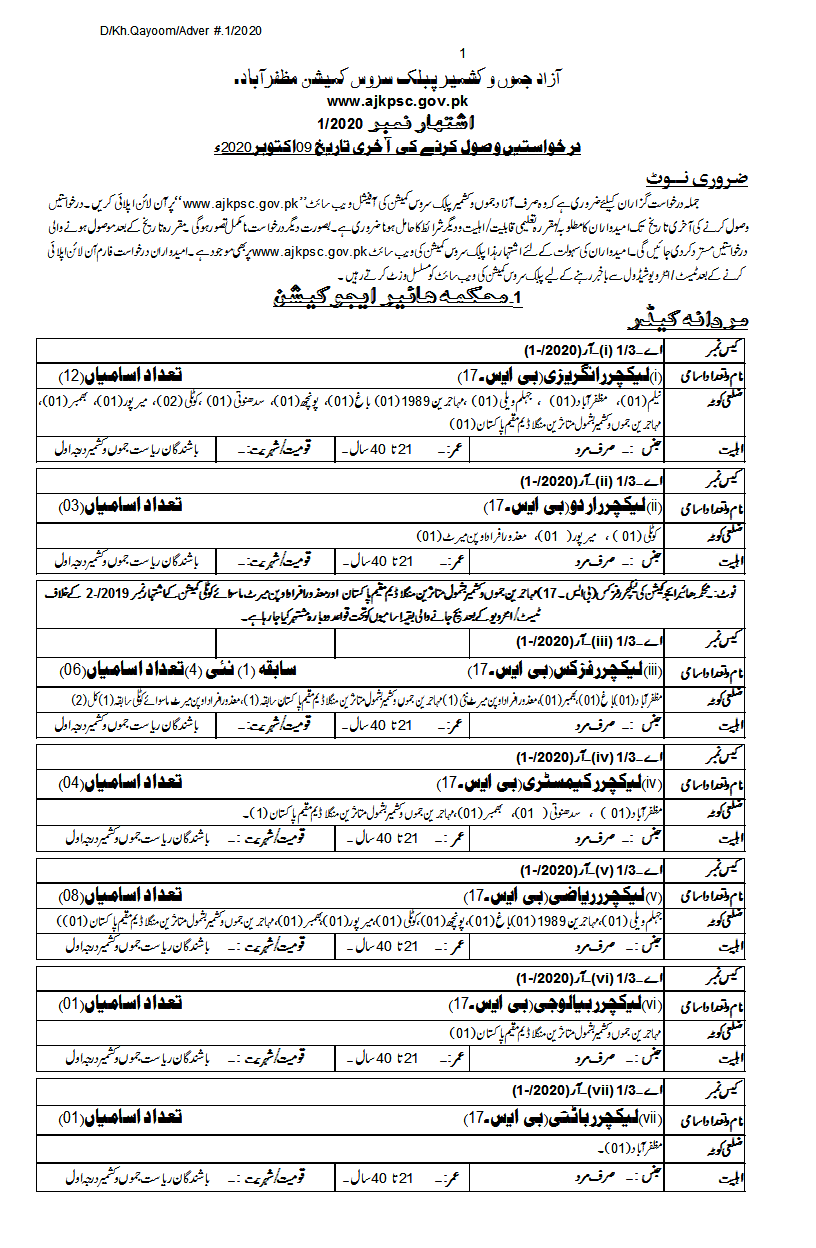 D/Kh.Qayoom/Adver #.1/2020
1
آزاد جموں و کشمیر پبلک سروس کمیشن مظفرآباد۔
www.ajkpsc.gov.pk
اشتہار نمبر 1/2020
درخواستیں وصول کرنے کی آخری تاریخ 09اکتوبر2020ء
ضروری نوٹ
جملہ درخواست گزاران کیلئے ضروری ہے کہ وہ صرف آزاد جموں و کشمیر پبلک سروس کمیشن کی آفیشل ویب سائٹ ’’www.ajkpsc.gov.pk‘‘ پر آن لائن اپلائی کریں۔ درخواستیں
وصول کرنے کی آخری تاریخ تک امیدواران کا مطلوبہ/مقررہ تعلیمی قابلیت/اہلیت و دیگر شرائط کا حامل ہونا ضروری ہے۔ بصورت دیگر درخواست نامکمل تصور ہوگی۔ مقررہ تاریخ کے بعد موصول ہونے والی
درخواستیں مسترد کر دی جائیں گی۔ امیدواران کی سہولت کے لئے اشتہار ہذا پبلک سروس کمیشن کی ویب سائٹ www.ajkpsc.gov.pk پر بھی موجود ہے۔ امیدواران درخواست فارم آن لائن اپلائی
کرنے کے بعد ٹیسٹ/انٹرویو شیڈول سے باخبر رہنے کے لیے پبلک سروس کمیشن کی ویب سائٹ کو مسلسل وزٹ کرتے رہیں۔
1۔محکمہ ھائیر ایجوکیشن
مردانہ کیڈر
کیس نمبر اے۔1/3 (i)۔آر(2020/-1)
نام و تعداد اسامی (i)لیکچرر انگریزی(بی ایس۔17) تعداد اسامیاں(12)
ضلعی کوٹہ نیلم(01)، مظفرآباد(01) ، جہلم ویلی (01) ،مہاجرین 1989(01) باغ(01)، پونچھ(01)، سدھنوتی (01) ،کوٹلی (02)، میرپور(01)، بھمبر(01)،
مہاجرین جموں و کشمیر بشمول متاثرین منگلا ڈیم مقیم پاکستان(01)
اہلیت جنس :۔ صرف مرد عمر:۔ 21 تا 40 سال۔ قومیت/شہریت:۔ باشندگان ریاست جموں و کشمیر درجہ اول
کیس نمبر اے۔1/3 (ii)۔آر(2020/-1)
نام و تعداد اسامی (ii)لیکچرر اردو(بی ایس۔17) تعداد اسامیاں(03)
ضلعی کوٹہ کوٹلی(01) ، میرپور( 01)، معذور افراد اوپن میرٹ(01)
اہلیت جنس :۔ صرف مرد عمر:۔ 21 تا 40 سال۔ قومیت/شہریت:۔ باشندگان ریاست جموں و کشمیر درجہ اول
نوٹ:۔ محکمہ ھائیر ایجوکیشن کی لیکچرر فزکس(بی ایس۔17)مہاجرین جموں و کشمیر بشمول متاثرین منگلا ڈیم مقیم پاکستان اور معذور افراد اوپن میرٹ ماسوائے کوٹلی کمیشن کے اشتہار نمبر 2019/-2 کے خلاف
ٹیسٹ/انٹرویو کے بعد بچ جانے والی بقیہ اسامیوں کو تحت قواعد دوبارہ مشتہر کیا جا رہا ہے۔
کیس نمبر اے۔1/3 (iii)۔آر(2020/-1)
نام و تعداد اسامی (iii)لیکچرر فزکس(بی ایس۔17) سابقہ (1) نئی (4)تعداد اسامیاں(06)
ضلعی کوٹہ مظفرآباد(01)باغ(01)،بھمبر(01)،معذور افراد اوپن میرٹ نئی (1)مہاجرین جموں و کشمیر بشمول متاثرین منگلا ڈیم مقیم پاکستان سابقہ(1)،معذور افراد اوپن میرٹ ماسوائے کوٹلی سابقہ(1)کل(2)
اہلیت جنس :۔ صرف مرد عمر:۔ 21 تا 40 سال۔ قومیت/شہریت:۔ باشندگان ریاست جموں و کشمیر درجہ اول
کیس نمبر اے۔1/3 (iv)۔آر(2020/-1)
نام و تعداد اسامی (iv)لیکچرر کیمسٹری(بی ایس۔17) تعداد اسامیاں(04)
ضلعی کوٹہ مظفرآباد(01 ) ، سدھنوتی( 01)، بھمبر(01)،مہاجرین جموں و کشمیر بشمول متاثرین منگلا ڈیم مقیم پاکستان(1)۔
اہلیت جنس :۔ صرف مرد عمر:۔ 21 تا 40 سال۔ قومیت/شہریت:۔ باشندگان ریاست جموں و کشمیر درجہ اول
کیس نمبر اے۔1/3 (v)۔آر(2020/-1)
نام و تعداد اسامی (v)لیکچرر ریاضی(بی ایس۔17) تعداد اسامیاں(08)
ضلعی کوٹہ جہلم ویلی(01)،مہاجرین 1989(01)باغ(01)،پونچھ(01)،کوٹلی(01)،میرپور(01)بھمبر(01)،مہاجرین جموں و کشمیر بشمول متاثرین منگلا ڈیم مقیم پاکستان(01))
اہلیت جنس :۔ صرف مرد عمر:۔ 21 تا 40 سال۔ قومیت/شہریت:۔ باشندگان ریاست جموں و کشمیر درجہ اول
کیس نمبر اے۔1/3 (vi)۔آر(2020/-1)
نام و تعداد اسامی (vi)لیکچرر بیالوجی(بی ایس۔17) تعداد اسامیاں(01)
ضلعی کوٹہ مہاجرین جموں و کشمیر بشمول متاثرین منگلا ڈیم مقیم پاکستان(01)
اہلیت جنس :۔ صرف مرد عمر:۔ 21 تا 40 سال۔ قومیت/شہریت:۔ باشندگان ریاست جموں و کشمیر درجہ اول
کیس نمبر اے۔1/3 (vii)۔آر(2020/-1)
نام و تعداد اسامی (vii)لیکچرر باٹنی(بی ایس۔17) تعداد اسامیاں(01)
ضلعی کوٹہ مظفرآباد(01)۔
اہلیت جنس :۔ صرف مرد عمر:۔ 21 تا 40 سال۔ قومیت/شہریت:۔ باشندگان ریاست جموں و کشمیر درجہ اول